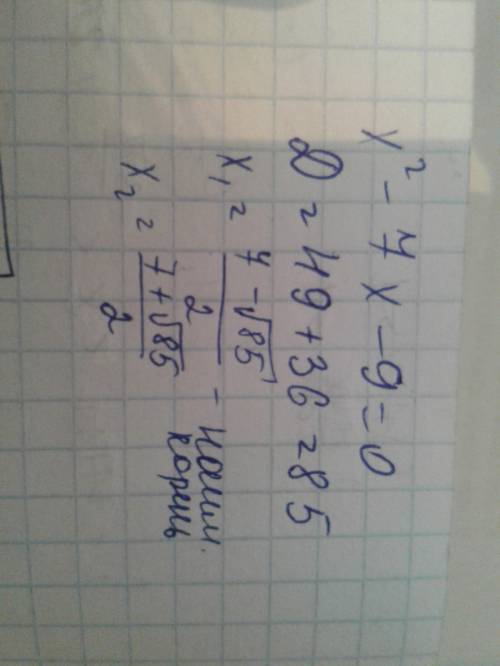 x² - 7x - 9 = 0
D = 49 + 36 = 85
x₁ = (7 - √85)/2 - наим. корень
x₂ = (7 + √85)/2